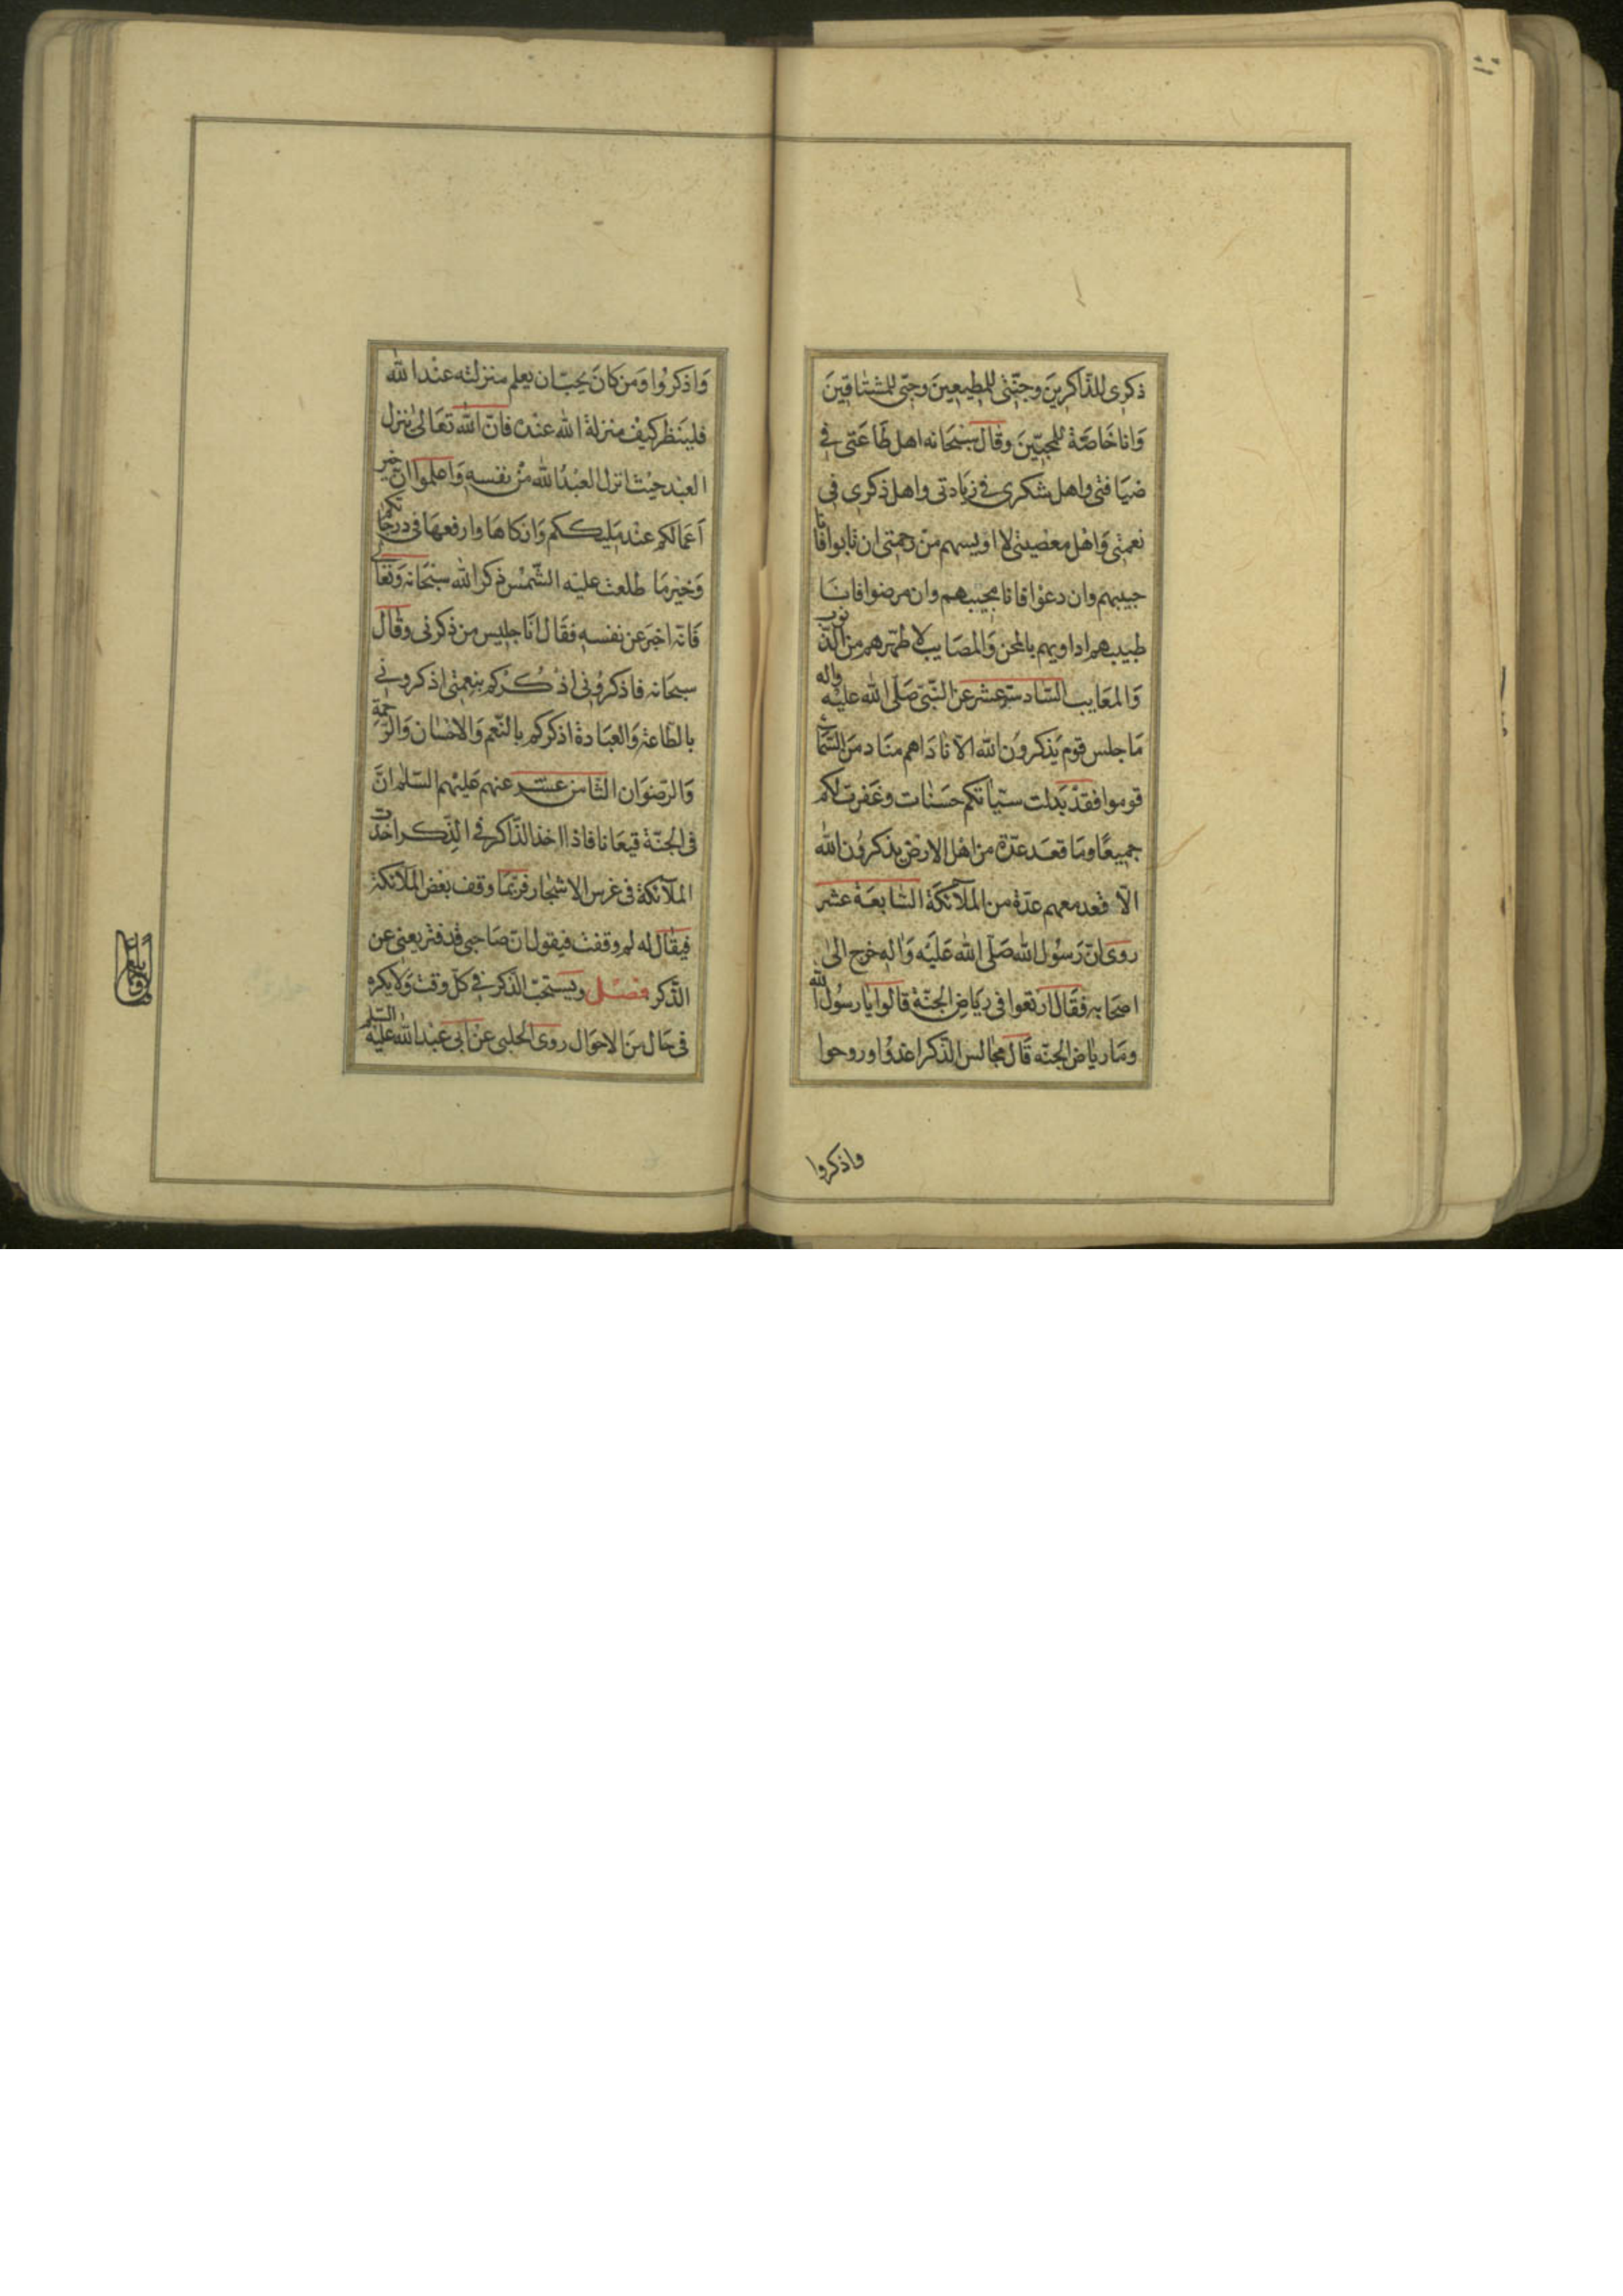 ذكرى للذّاكرينَ وجنّتى للمطيعينَ وحبّى للمشتاقينَ
وَانا خَاصّة للمحبّينَ وقالَ سبحَانه اهل طَاعَتى فى
ضيَافتى واهل شكرى فى زيَادتى واهل ذكرى فى
نعمتى وَاهْل معْصيتى لا اويسهم من رحمتى ان تابوا فانا
حبيبهم وان دعَوْا فانا مجيبهم وان مرضوا فانا
طبيبهم اداويهم بالمحن وَالمصَايب لاطهّرهم من الذّنوب
وَالمعَايب السّادسة عشر عن النّبىّ صَلّى الله عليْه واله
مَا جلس قوم يَذكروُن الله الّا نادَاهم منَاد منَ السّمَاء
قوموا فقدْ بَدلت سيّئاتكم حسَنات وغَفرت لكم
جميعًا ومَا قعَد عدّة من اهْل الارْض يذكروُن الله
الّا قعد معهم عدّة من الملآئكَة السّابعَة عشر
روى انّ رَسُول الله صَلّى الله عَليْه وَاله خرج الى
اصحَابه فقَال ارتعوا فى ريَاض الجنّة قالوا يَا رسُول الله
ومَا رياض الجنّه قَال مجالس الذّكر اغدُوا وروحوا
واذكروا
وَاذكروُا وَمن كانَ يحبّ ان يعلم منزلته عنْد الله
فليَنظر كيْف منزلة الله عنْده فانّ اللهَ تعَالى ينزل
العبْد حيْث انزل العبْدُ الله منْ نفسه وَاعلموا ان خير
اَعْمَالكم عنْد مَليككم وَازكاهَا وارفعهَا فى درجَاتكم
وَخيْر مَا طلعت عليْه الشّمْس ذكر الله سبْحَانه وَتعَالى
فَانّه اخبَر عن نفسه فقَال انَا جليس من ذكرنى وقَال
سبحَانه فاذكروُنى اذْكُرْكم بنعمتى اذكرونى
بالطّاعة وَالعبَادة اذكركم بالنّعم وَالاحْسَان وَالرّحمة
وَالرّضوَان الثّامن عشر عنهم عَليْهم السّلم انَّ
فى الجنّة قيعَانا فاذا اخذ الذّاكر فى الذّكر اخذت
الملآئكة فى غرس الاشجَار فربّمَا وقف بعْض الملآئكة
فيقَال له لم وقفت فيقول انّ صَاحبى قد فتر يعنى عن
الذّكر فصل ويَسْتحبّ الذّكر فى كلّ وقت وَلا يكره
فى حَال منَ الاحوَال روى الحَلبى عنْ ابى عبْد الله عليْه السّلم